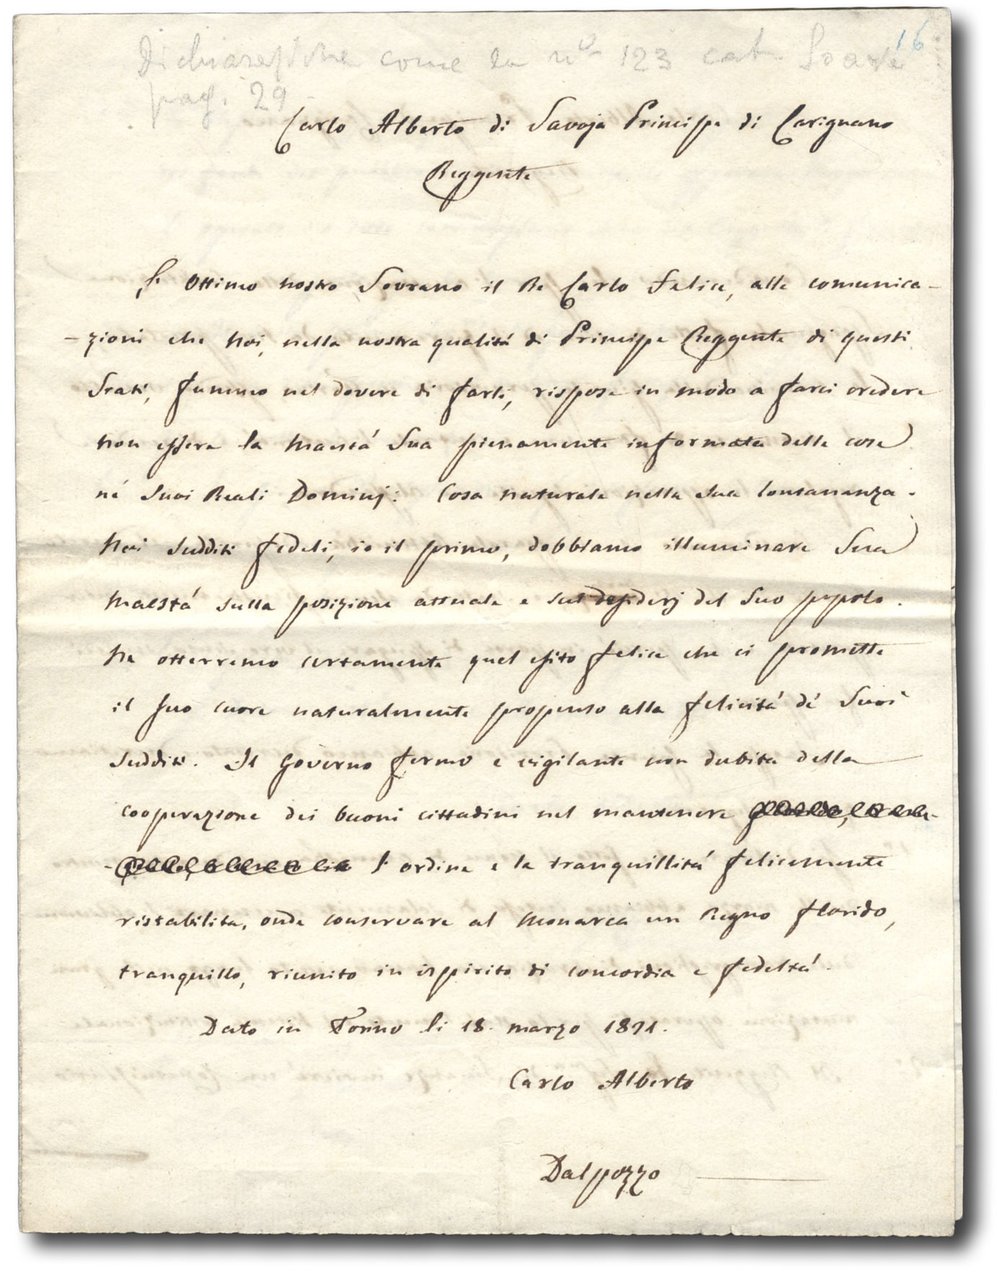 16
Dichiarazione come la n° 123 cat.
pag. 29
Carlo Alberto di Savoja Principe di Carignano
Reggente
L' Ottimo nostro Sovrano il Re Carlo Felice, alle comunica-
-zioni che Noi, nella nostra qualità di Principe Reggente di questi
Stati, fummo nel dovere di farli, rispose in modo a farci credere
non essere la Maestà Sua pienamente informata delle cose
né Suoi Reali Dominj: Cosa naturale nella sua lontananza.
Noi sudditi fedeli, io il primo, dobbiamo illuminare Sua
Maestà sulla posizione attuale e sui desiderj del Suo popolo.
Ne otterremo certamente quel esito felice che ci promette
il suo cuore naturalmente propenso alla felicità dé Suoi
Sudditi. Il Governo fermo e vigilante non dubita della
cooperazione dei buoni cittadini nel mantenere
l' ordine e la tranquillità felicemente
ristabilita, onde conservare al Monarca un Regno florido,
tranquillo, riunito in ispirito di concordia e fedeltà.
Dato in Torino li 18. marzo 1821.
Carlo Alberto
Dalpozzo